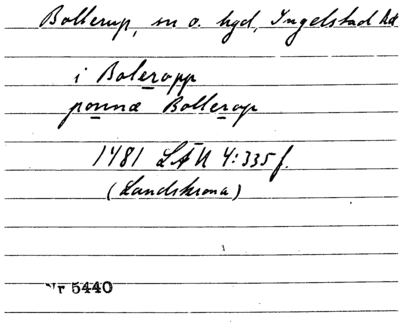 Bollerup, sn o. hgd, Ingelstad hd
i Boleropp
ponnæ Bollerop
1481 LÄU 4:335 f.
(Landskrona)
Nr 5440